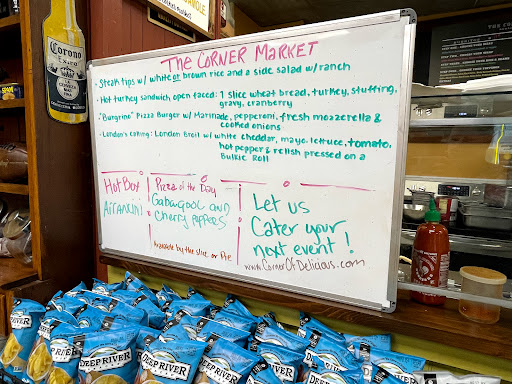 The Corner Market
• Steak tips w/ white or brown rice and a side salad w/ ranch
• Hot turkey sandwich open faced: 1 slice wheat bread, turkey, stuffing,
gravy, cranberry
• "Burgrino" Pizza Burger w/ Marinade, pepperoni, fresh mozzerella &
cooked onions
• London's calling: London Broil w/ white cheddar, mayo, lettuce, tomato,
hot pepper & relish pressed on a
Bulkie Roll
Hot Box
Arrancini
Pizza of the Day
Gabagool and
Cherry Peppers
Available by the slice or Pie
Let us
Cater your
next event!
www.CornerOfDelicious.com
Corona
Extra
DEEP RIVER
DEEP RIVER
DEEP RIVER
DEEP RIVER